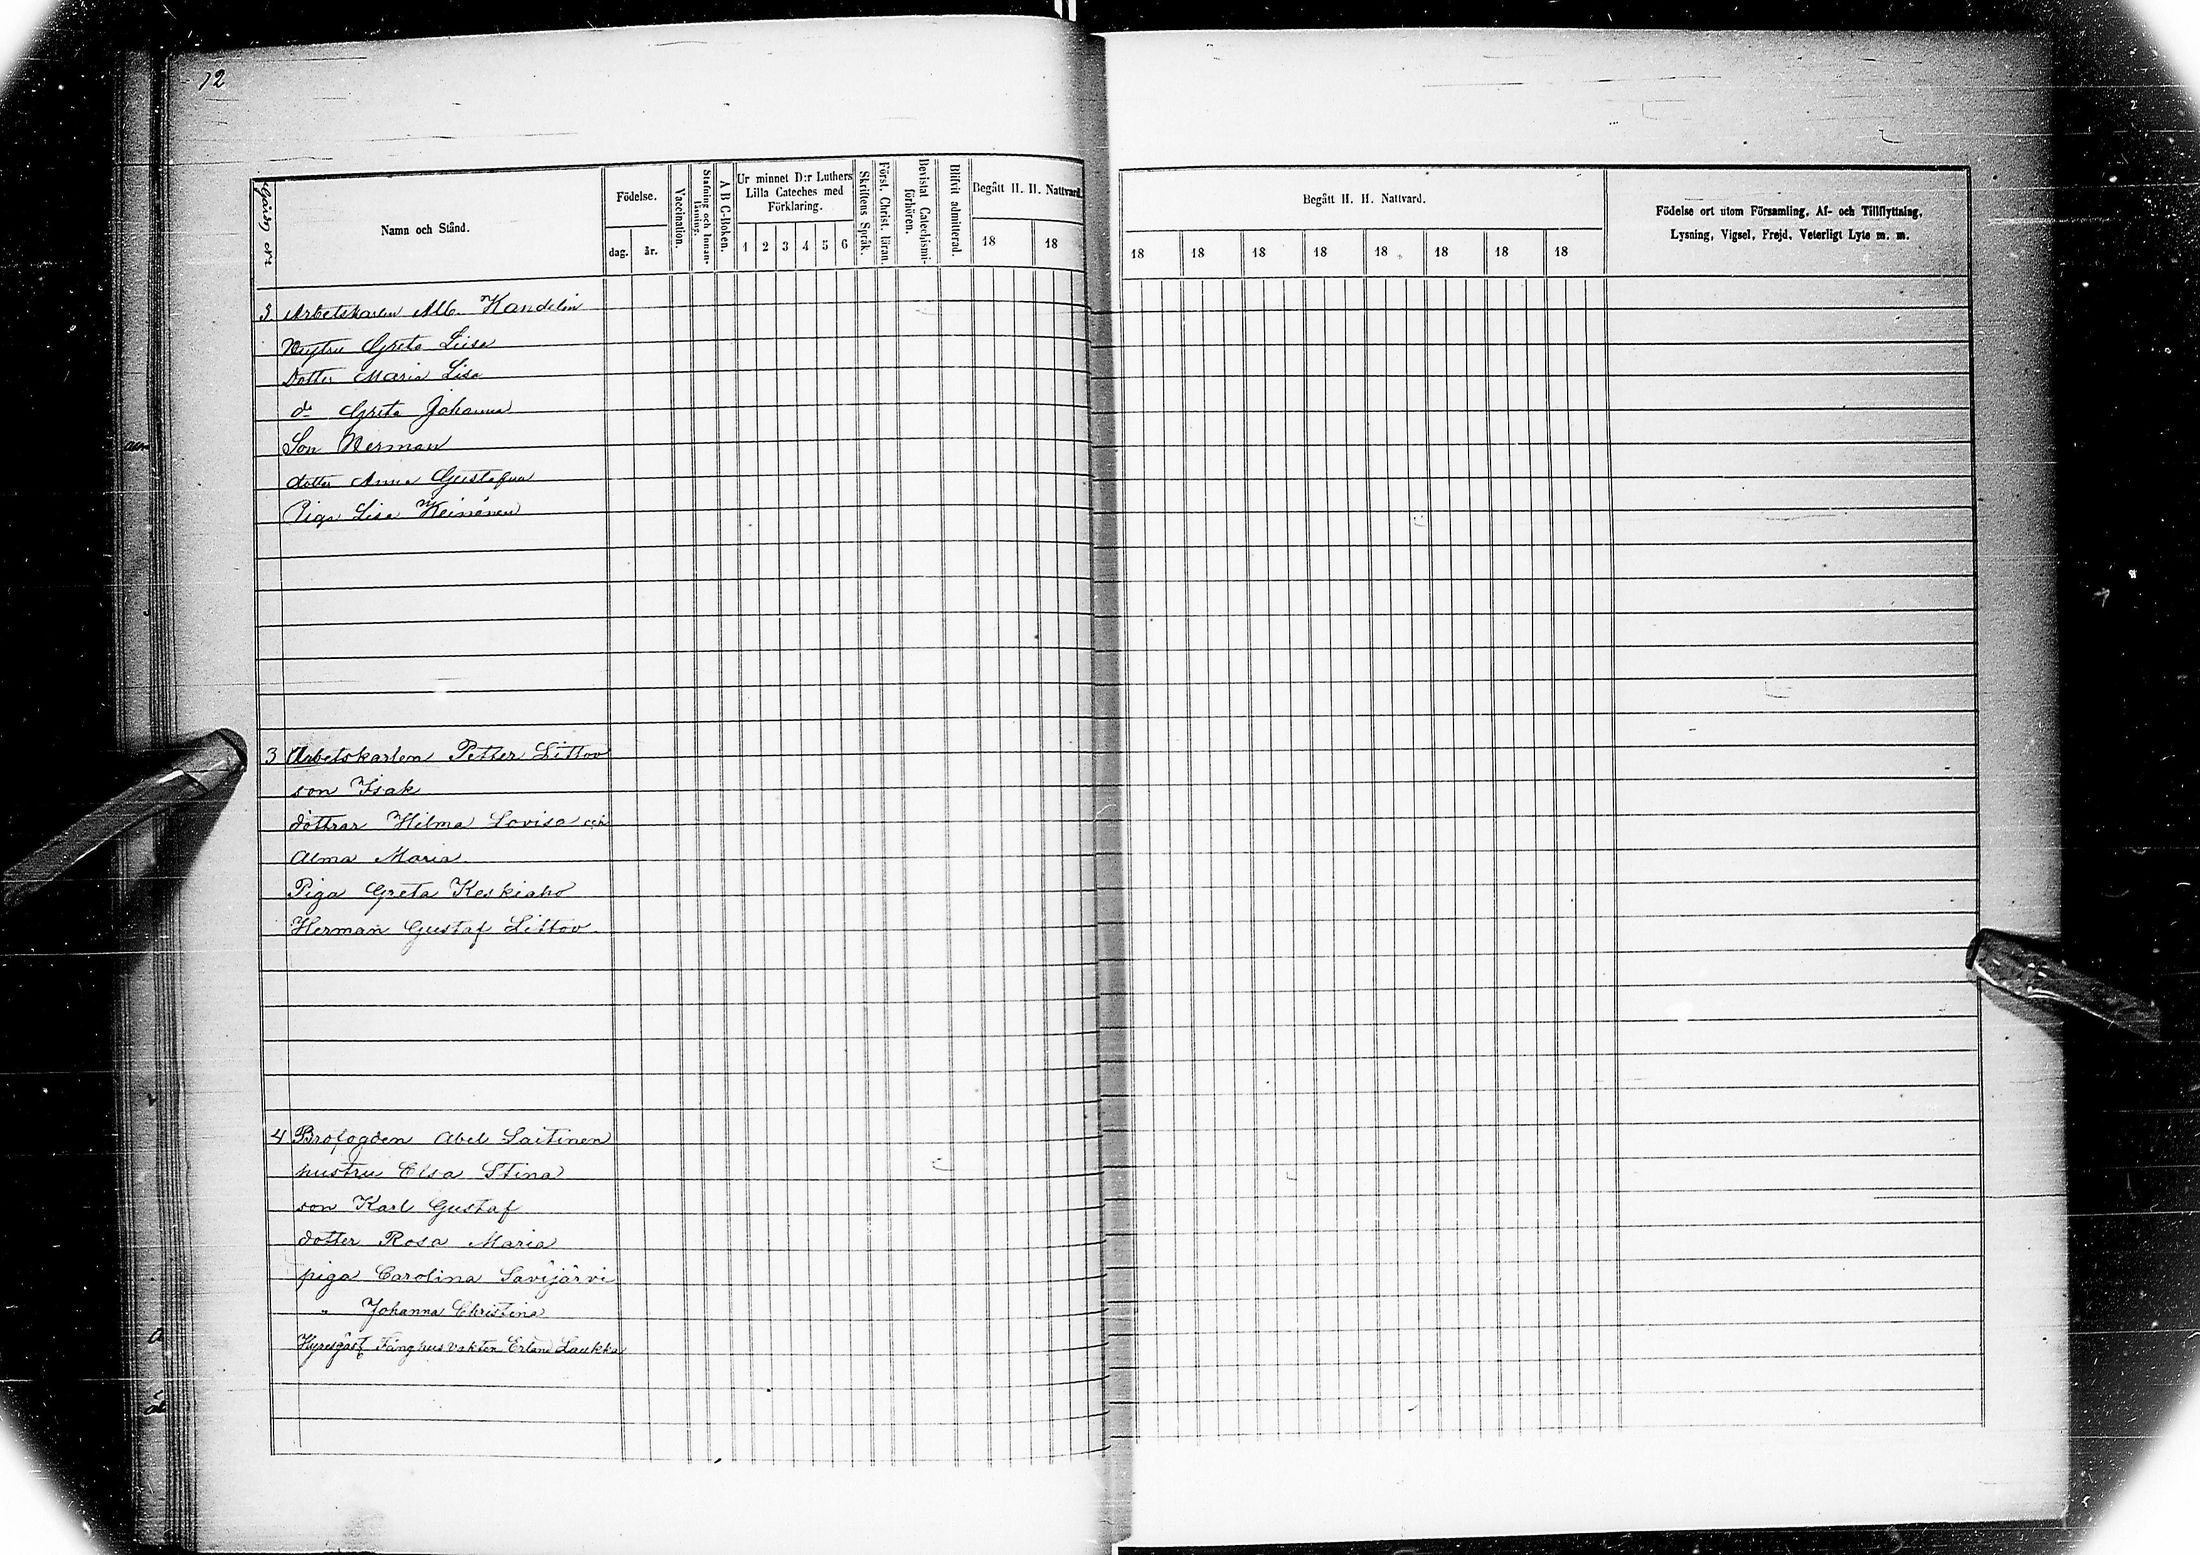 12
Gård N:o
Namn och Stånd.
Födelse.
dag.
år.
Vaccination.
Stafning och Innan-
läsning.
A B C-Boken.
Ur minnet D:r Luthers
Lilla Cateches med
Förklaring.
1 2 3 4 5 6
Skriftens Språk.
Först. Christ. läran.
Bevistat Catechismi-
förhören.
Blifvit admitterad.
Begått H. H. Nattvard.
18 18
Begått H. H. Nattvard.
18 18 18 18 18 18 18 18
Födelse ort utom Församling, Af- och Tillflyttning,
Lysning, Vigsel, Frejd, Veterligt Lyte m. m.
3 Arbetskarlen Alb. Kandelin
Hustru Greta Lisa
Dotter Maria Lisa
d:o Greta Johanna
Son Herman
dotter Anna Gustafva
Piga Lisa Heinonen
3 Arbetskarlen Petter Littov
son Isak
döttrar Hilma Lovisa och
Alma Maria
Piga Greta Keskiaho
Herman Gustaf Littov
4 Brofogden Abel Laitinen
hustru Elsa Stina
son Karl Gustaf
dotter Rosa Maria
piga Carolina Savijärvi
" Johanna Christina
Hyresgäst Fånghusvakten Erland Laukka